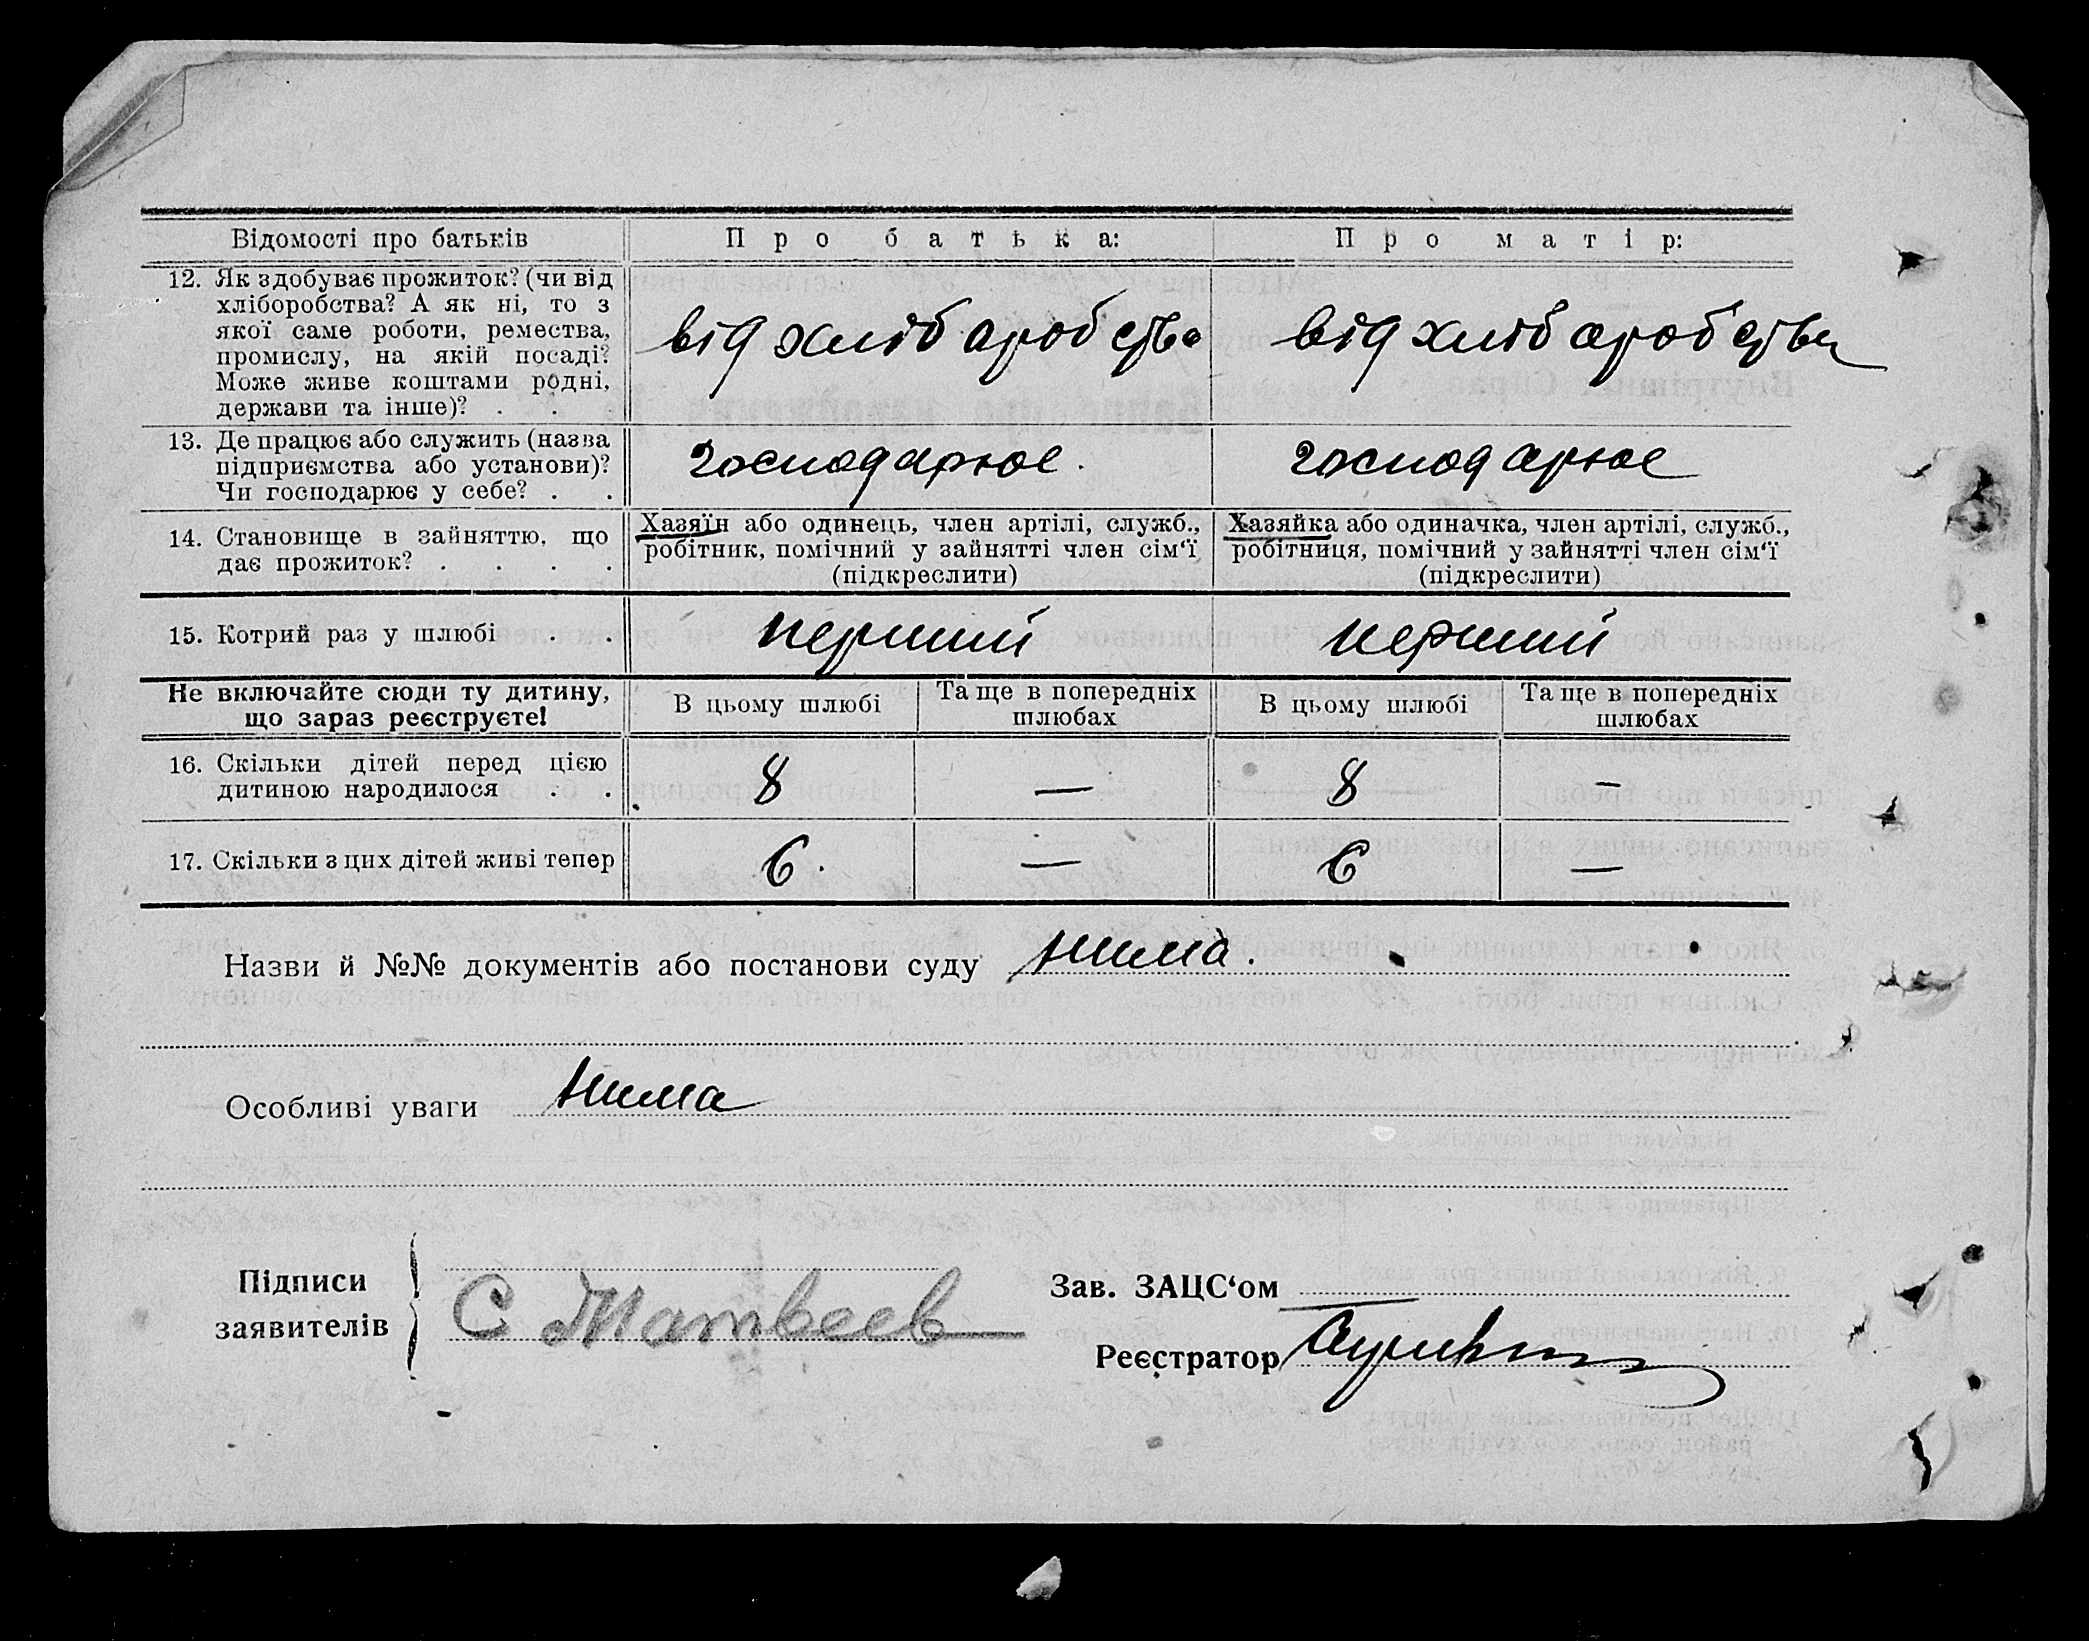 Відомості про батьків Про батька: Про матір:
12. Як здобуває прожиток? (чи від
хліборобства? А як ні, то з
якої саме роботи, ремества,
промислу, на якій посаді?
Може живе коштами родні,
держави та інше)? . .
від хліб аробства від хліб аробства
13. Де працює або служить (назва
підприємства або установи)?
Чи господарює у себе? . .
господарює. господарює
14. Становище в зайняттю, що
дає прожиток? . . . .
Хазяїн або одинець, член артілі, служб.,
робітник, помічний у зайнятті член сім'ї
(підкреслити)
Хазяйка або одиначка, член артілі, служб.,
робітниця, помічний у зайнятті член сім'ї
(підкреслити)
15. Котрий раз у шлюбі . . перший перший
Не включайте сюди ту дитину,
що зараз реєструєте!
В цьому шлюбі Та ще в попередніх
шлюбах
В цьому шлюбі Та ще в попередніх
шлюбах
16. Скільки дітей перед цією
дитиною народилося . .
8 — 8 —
17. Скільки з цих дітей живі тепер 6. — 6 —
Назви й №№ документів або постанови суду нима.
Особливі уваги нима
Підписи
заявителів
С Матвеев
Зав. ЗАЦС'ом
Реєстратор